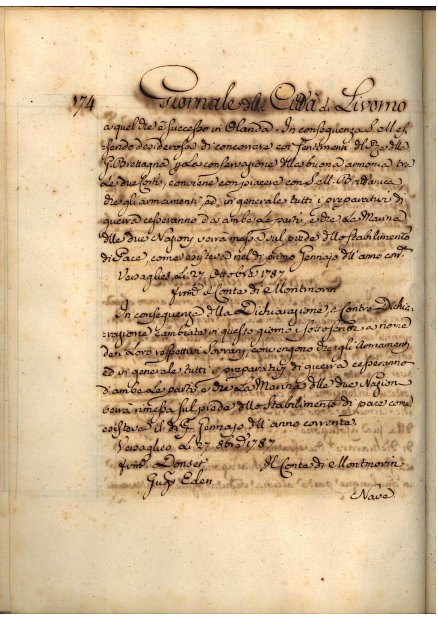 174 Giornale della Città di Livorno
a quel che è successo in Olanda. In conseguenza S. M. es-
sendo desiderosa di concorrere coi sentimenti del Rè della
G. Brettagna p. la conservazione della buona armonia tra
le due Corti, conviene con piacere con S. M. Britanica,
che gli armamenti, ed in generale tutti i preparativi di
guerra cesseranno da ambe le parti, e che la Marina
delle due Nazioni sarà messa sul piede dello stabilimento
di Pace, come esisteva nel dì primo Gennajo dell'anno corr.te
Versaglies li 27. Ottobre 1787.
firm. il Conte di Montmorin
In conseguenza della Dichiarazione, e Contro Dichia-
razione cambiate in questo giorno i sottoscritti a nome
dei Loro respettivi Sovrani, convengono che gli Armamenti
ed in generale tutti i preparativi di guerra cesseranno
d'ambe le parti, e che la Marina delle due Nazioni
verrà rimessa sul piede dello Stabilimento di pace come
esisteva il dì P.º Gennajo dell'anno corrente.
Versaglies li 27. 8bre 1787.
firm. Dorset Il Conte di Montmorin
Gug.º Eden
Nave